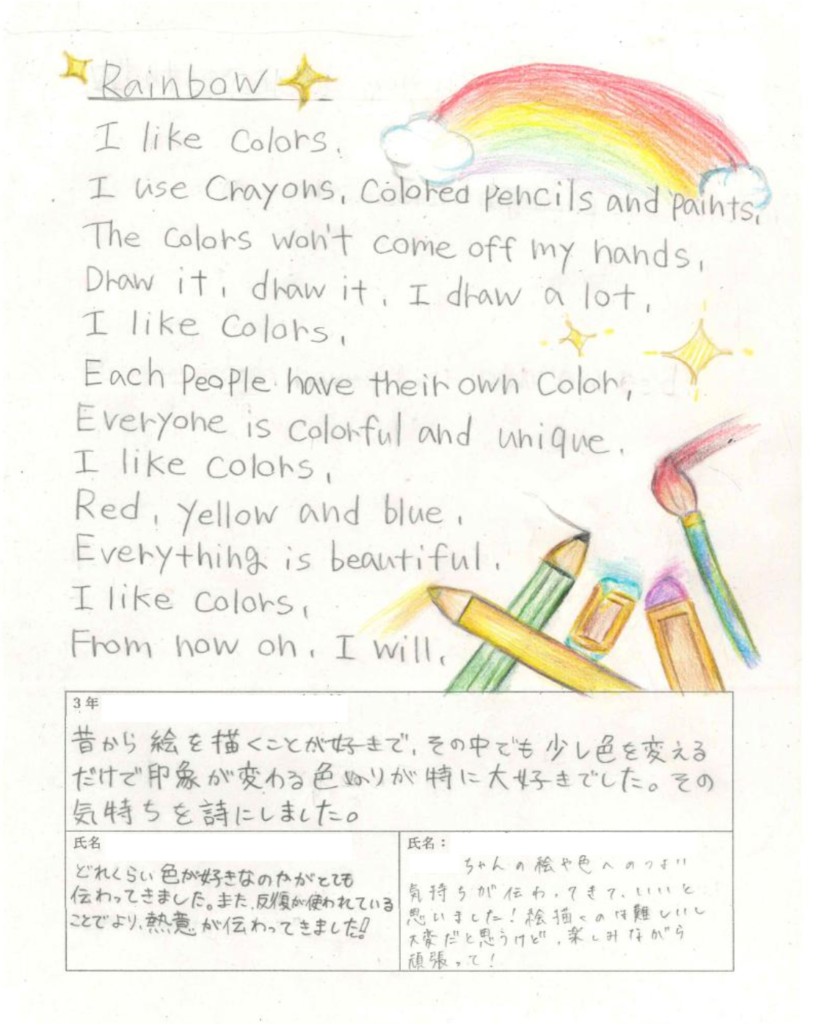 Rainbow
I like colors.
I use Crayons, Colored pencils and paints,
The colors won't come off my hands,
Draw it, draw it, I draw a lot,
I like colors,
Each people have their own color,
Everyone is colorful and unique.
I like colors,
Red, yellow and blue,
Everything is beautiful.
I like colors,
From now on, I will,
3年
昔から絵を描くことが好きで、その中でも少し色を変える
だけで印象が変わる色ぬりが特に大好きでした。その
気持ちを詩にしました。
氏名
どれくらい色が好きなのかがとても
伝わってきました。また、反復が使われている
ことでより、熱意が伝わってきました!!
氏名：
ちゃんの絵や色へのつよい
気持ちが伝わってきて、いいと
思いました！絵描くのは難しいし
大変だと思うけど、楽しみながら
頑張って！